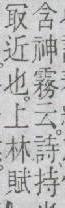 含神霧云。詩持
㝡近也。上林賦